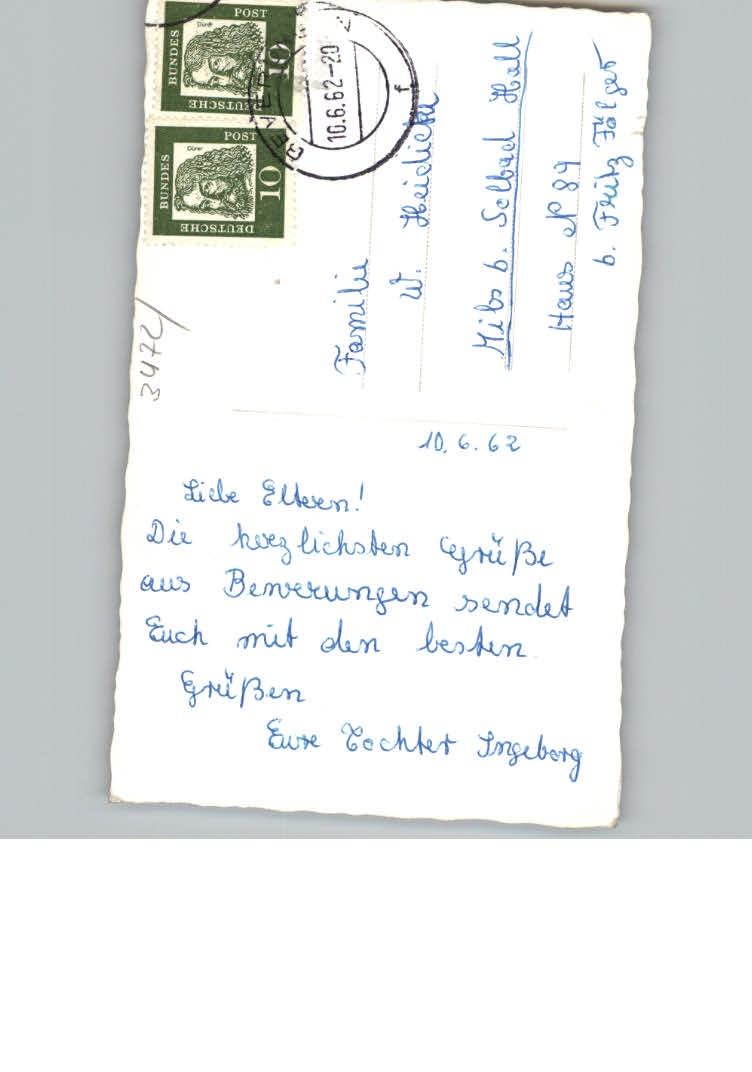 10.6.62
Liebe Eltern!
Die herzlichsten Grüße
aus Beverungen sendet
Euch mit den besten
Grüßen
Eure Tochter Ingeborg
Familie
W. Heidicke
Mils b. Solbad Hall
Haus N 84
b. Fritz Fölger
3472/
DEUTSCHE BUNDES POST
Dürer
10
DEUTSCHE BUNDES POST
Dürer
10
10.6.62-20
f